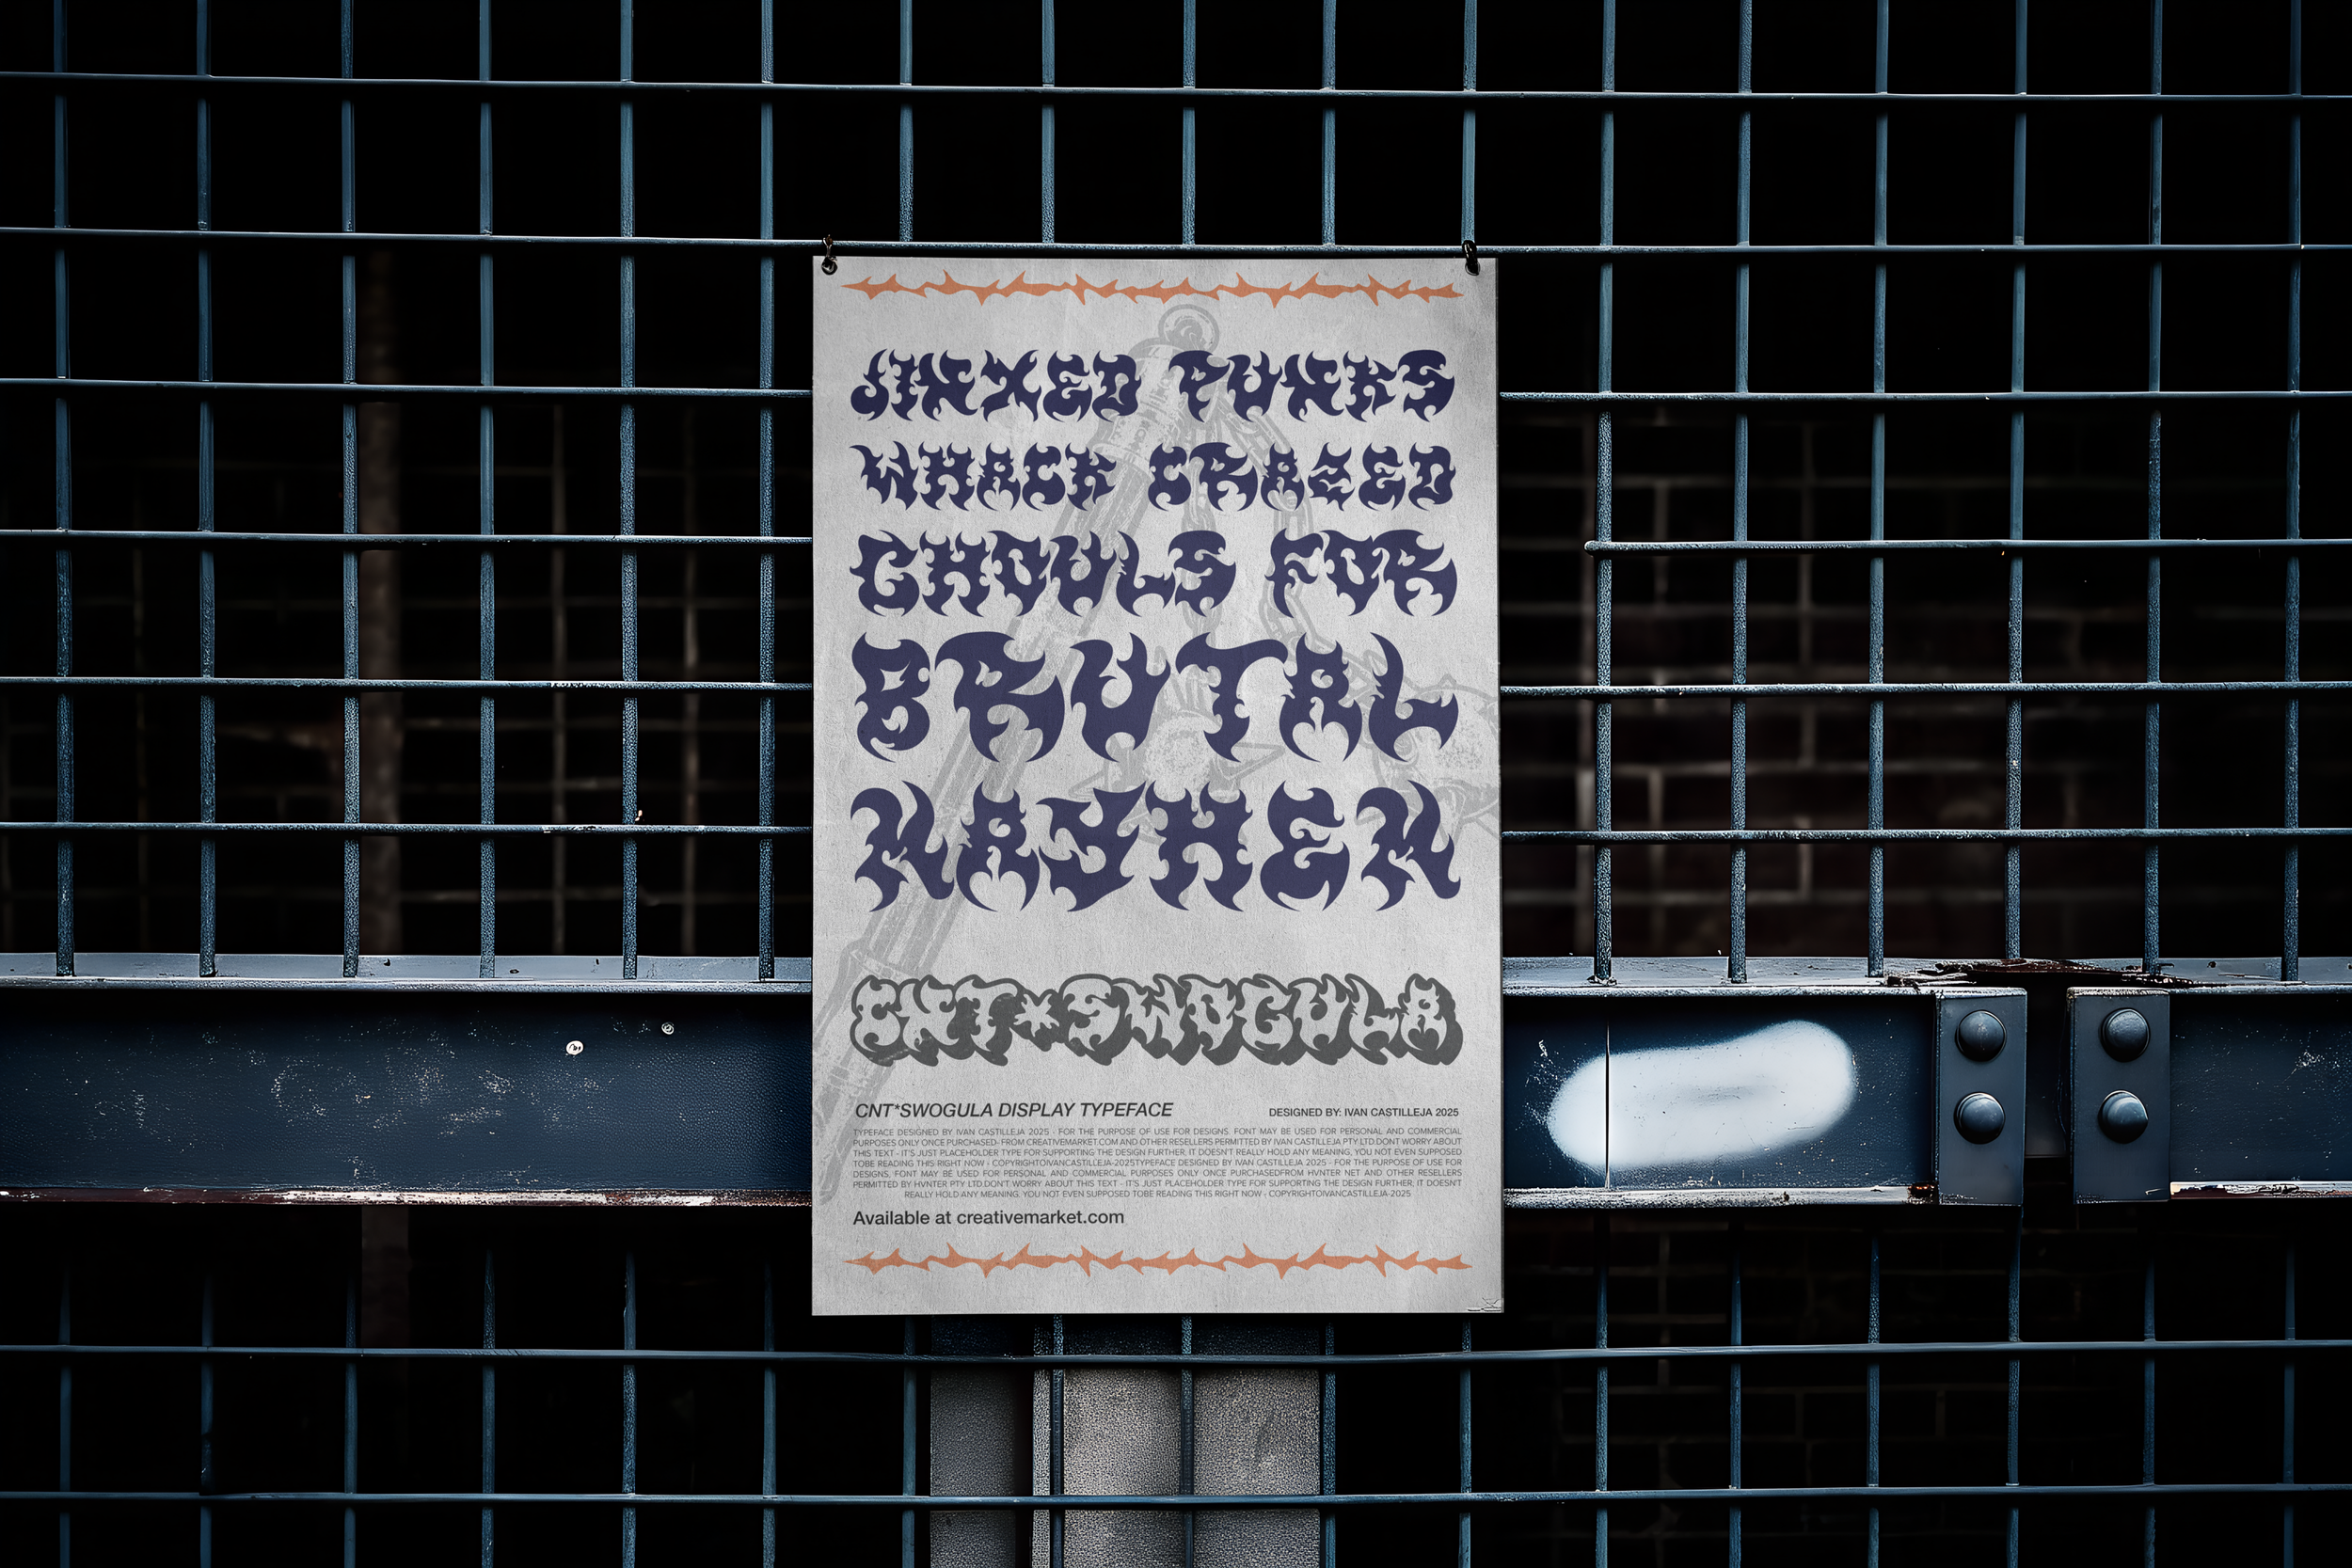 JINXED PUNKS
WHACK CRAZED
GHOULS FOR
BRUTAL
MAYHEM
CNT*SWOGULA
CNT*SWOGULA DISPLAY TYPEFACE
DESIGNED BY: IVAN CASTILLEJA 2025
TYPEFACE DESIGNED BY IVAN CASTILLEJA 2025 - FOR THE PURPOSE OF USE FOR DESIGNS. FONT MAY BE USED FOR PERSONAL AND COMMERCIAL
PURPOSES ONLY ONCE PURCHASED- FROM CREATIVEMARKET.COM AND OTHER RESELLERS PERMITTED BY IVAN CASTILLEJA PTY LTD.DONT WORRY ABOUT
THIS TEXT - IT'S JUST PLACEHOLDER TYPE FOR SUPPORTING THE DESIGN FURTHER, IT DOESN'T REALLY HOLD ANY MEANING, YOU NOT EVEN SUPPOSED
TOBE READING THIS RIGHT NOW - COPYRIGHTOIVANCASTILLEJA-2025TYPEFACE DESIGNED BY IVAN CASTILLEJA 2025 - FOR THE PURPOSE OF USE FOR
DESIGNS, FONT MAY BE USED FOR PERSONAL AND COMMERCIAL PURPOSES ONLY ONCE PURCHASEDFROM HVNTER NET AND OTHER RESELLERS
PERMITTED BY HVNTER PTY LTD.DON'T WORRY ABOUT THIS TEXT - IT'S JUST PLACEHOLDER TYPE FOR SUPPORTING THE DESIGN FURTHER, IT DOESN'T
REALLY HOLD ANY MEANING. YOU NOT EVEN SUPPOSED TOBE READING THIS RIGHT NOW - COPYRIGHTOIVANCASTILLEJA-2025
Available at creativemarket.com